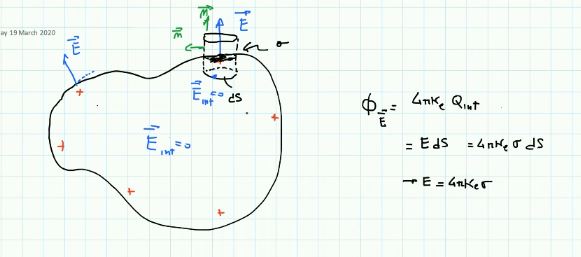 ay 19 March 2020
n⃗
E⃗
n⃗
σ
E⃗
E⃗int=0
dS
E⃗int=0
ΦE⃗ = 4πKe Qint
= E dS = 4πKe σ dS
→ E = 4πKeσ